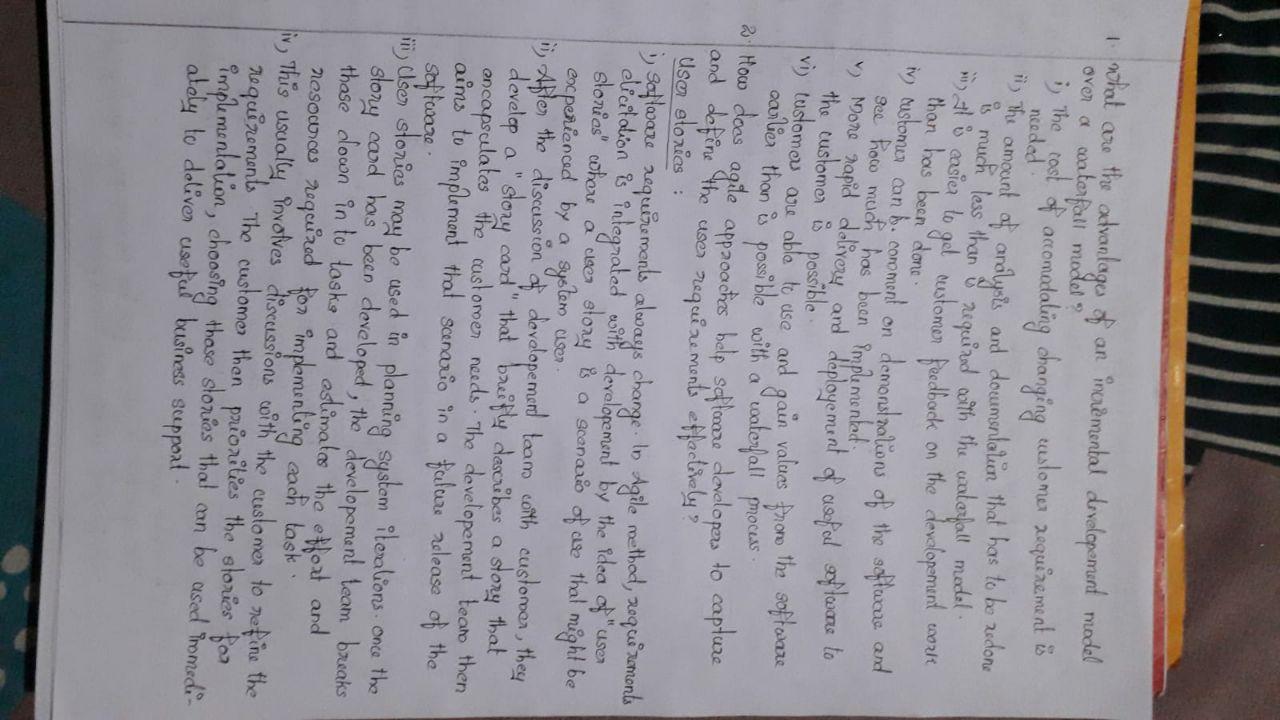 1. What are the advantages of an incremental developement model
over a waterfall model?
i) The cost of accomodating changing customer requirement is
needed.
ii) The amount of analysis and documentation that has to be redone
is much less than is required with the waterfall model.
iii) It is easier to get customer feedback on the developement work
than has been done.
iv) customer can comment on demonstrations of the software and
see how much has been implemented.
v) More rapid delivery and deployement of useful software to
the customer is possible.
vi) customers are able to use and gain values from the software
earlier than is possible with a waterfall process.
2. How does agile approaches help software developers to capture
and define the user requirements effectively?
User stories :
i) Software requirements always change. In Agile method, requirements
elicitation is integrated with developement by the idea of "user
stories" where a user story is a scenario of use that might be
experienced by a system user.
ii) After the discussion of developement team with customer, they
develop a "story card" that breifly describes a story that
encapsulates the customer needs. The developement team then
aims to implement that scenario in a future release of the
software.
iii) User stories may be used in planning system iterations. once the
story card has been developed, the developement team breaks
these down in to tasks and estimates the effort and
resources required for implementing each task.
iv) This usually involves discussions with the customer to refine the
requirements The customer then priorities the stories for
implementation, choosing those stories that can be used immedi-
ately to deliver useful business support.